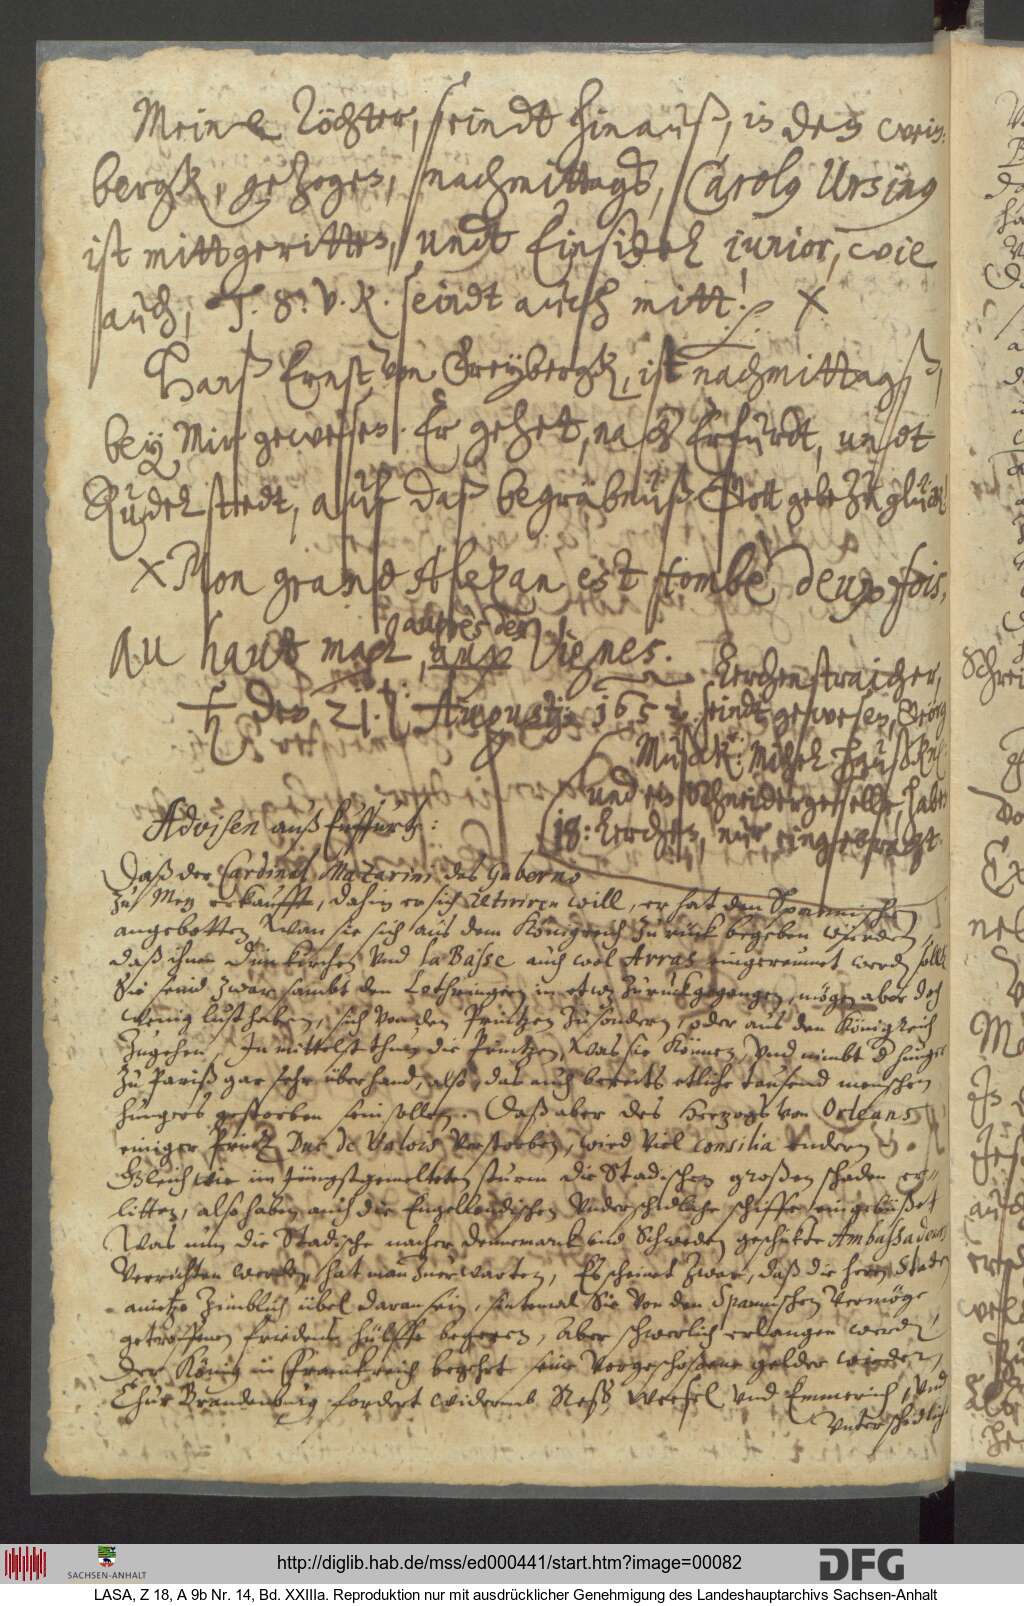 Meine Töchter, seindt hinauß, in den wein-
bergk, gezogen, nachmittags, Carolus Ursinus
ist mittgeritten, undt Einsidel iunior, wie
auch, T. S. v. K. seindt auch mitt!
Hanß Ernst von Freybergk, ist nachmittags,
bey Mir gewesen. Er gehet, nach Erfurdt, undt
Rudelstedt, auf daß begräbnuß Gott gebe Ihm glück
X Mon grand Alezan est tombè deux fois,
Au haut mal, aux Vignes.
auprès des
den 21. Augustj: 1652.
Lerchenstraicher,
seindt gewesen, Georg
Michel
und ein Schneidergeselle, haben
18: Lerchen, nur eingebracht
Advisen auß Erffurtt:
Daß der Cardinal Mazarini des Guberno
zu Metz erkaufft, dahin er sich retiriren will, er hat den Spannischen
angebotten, Wan sie sich aus dem Königreich zurück begeben würden
daß ihnen Dünkirchen Vnd la Bassee auch wol Arras eingereumet werden solle
Sie seind zwar sambt den Lothringern in etwz zurückgegangen, mögen aber doch
wenig lust haben, sich von den Printzen zusondern, oder aus den Königreich
zugehen, In mittelst thun die Printzen, was sie können, Vnd nimbt der hunger
zu Pariß gar sehr überhand, also, das auch bereits etliche tausend menschen
hungers gestorben sein sollen. Daß aber des Herzogs von Orleans
einiger Printz Duc de Valois Verstorben, wird viel consilia endern
Gleich wie im jüngst gemelteten sturm die Stadischen großen schaden er-
litten, also haben auch die Engellendischen Vnderschidliche schiffe eingebüßet
Was nun die Stadische nacher Dennemarck und Schweden geschickte Ambassadeurs
Verrichten werden, hat man zu erwarten, Es scheinet zwar, daß die herrn Staden
anietzo Zimblich übel daran sein, sintemal Sie von den Spannischen Vermöge
getroffenen friedens hülffe begeren, Aber schwerlich erlangen werden
Der König in Franckreich begehrt seine Vorgeschoßene gelder wieder,
Chur Brandenburg fordert widerumb Reeß, Weesel Vnd Emmerich, Vnd
Vnterschidlich
http://diglib.hab.de/mss/ed000441/start.htm?image=00082
SACHSEN-ANHALT
DFG
LASA, Z 18, A 9b Nr. 14, Bd. XXIIIa. Reproduktion nur mit ausdrücklicher Genehmigung des Landeshauptarchivs Sachsen-Anhalt